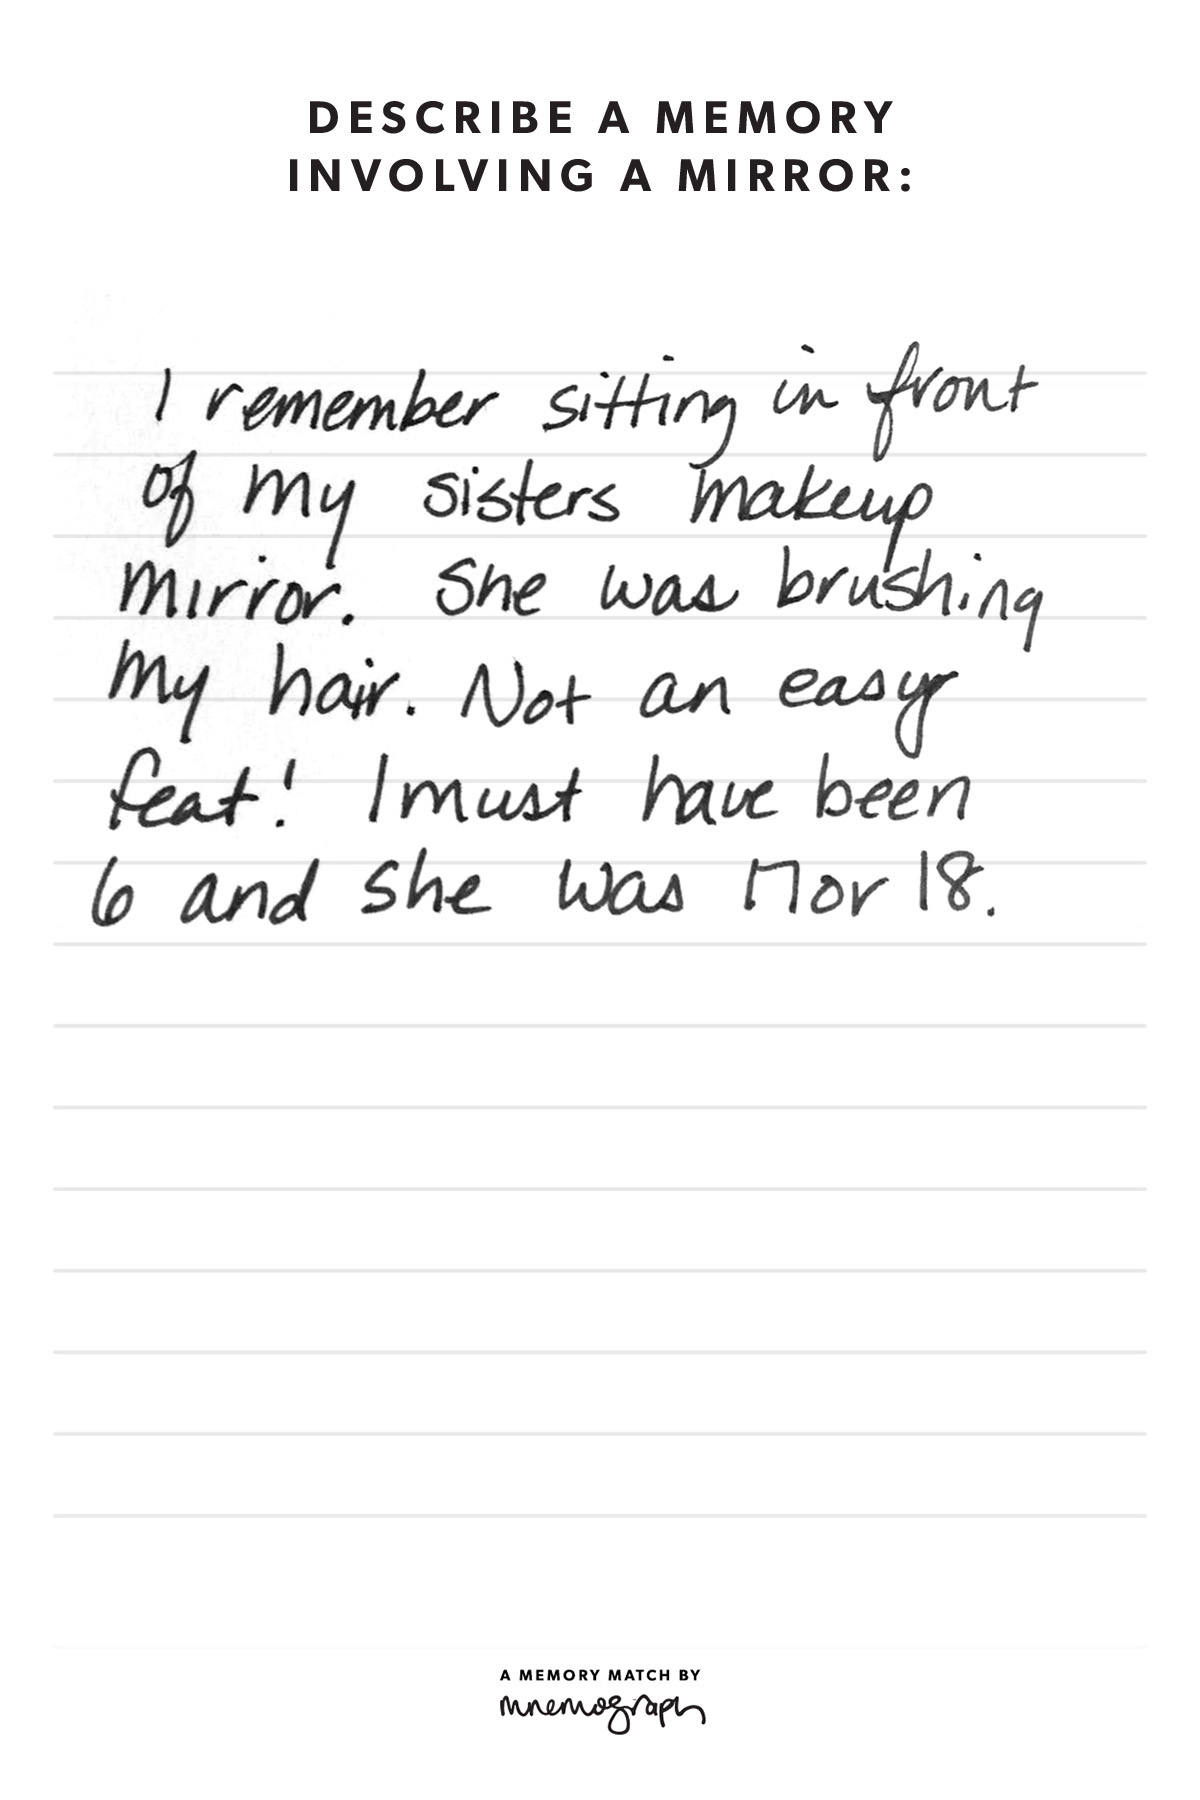 DESCRIBE A MEMORY
INVOLVING A MIRROR:
I remember sitting in front
of my sisters makeup
mirror. She was brushing
my hair. Not an easy
feat! I must have been
6 and she was 17 or 18.
A MEMORY MATCH BY
mnemograph